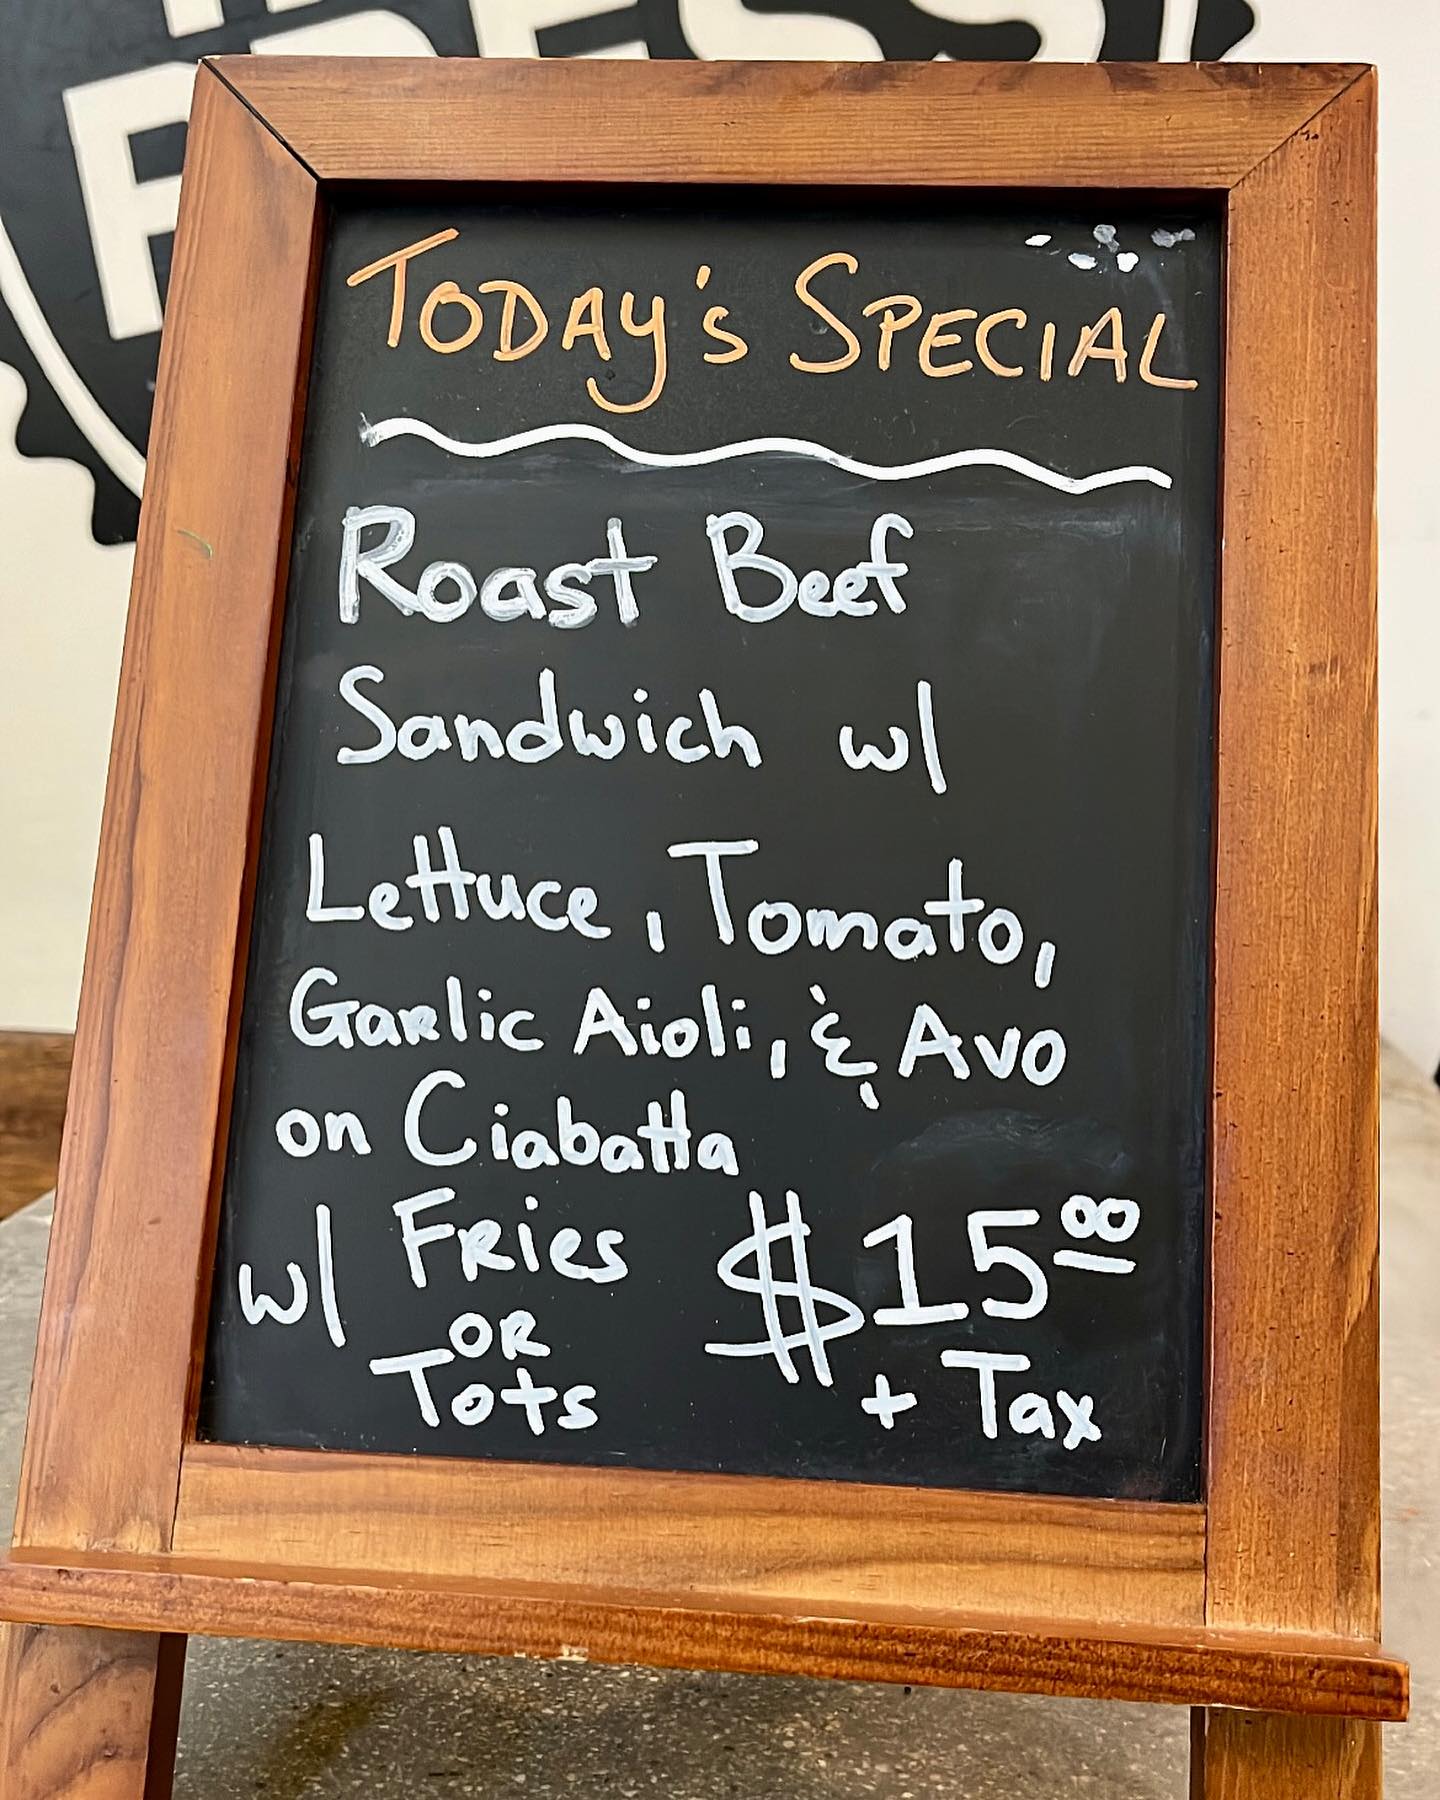 Today's Special
Roast Beef
Sandwich w/
Lettuce, Tomato,
Garlic Aioli, & Avo
on Ciabatta
w/ Fries
or
Tots
$15.00
+ Tax